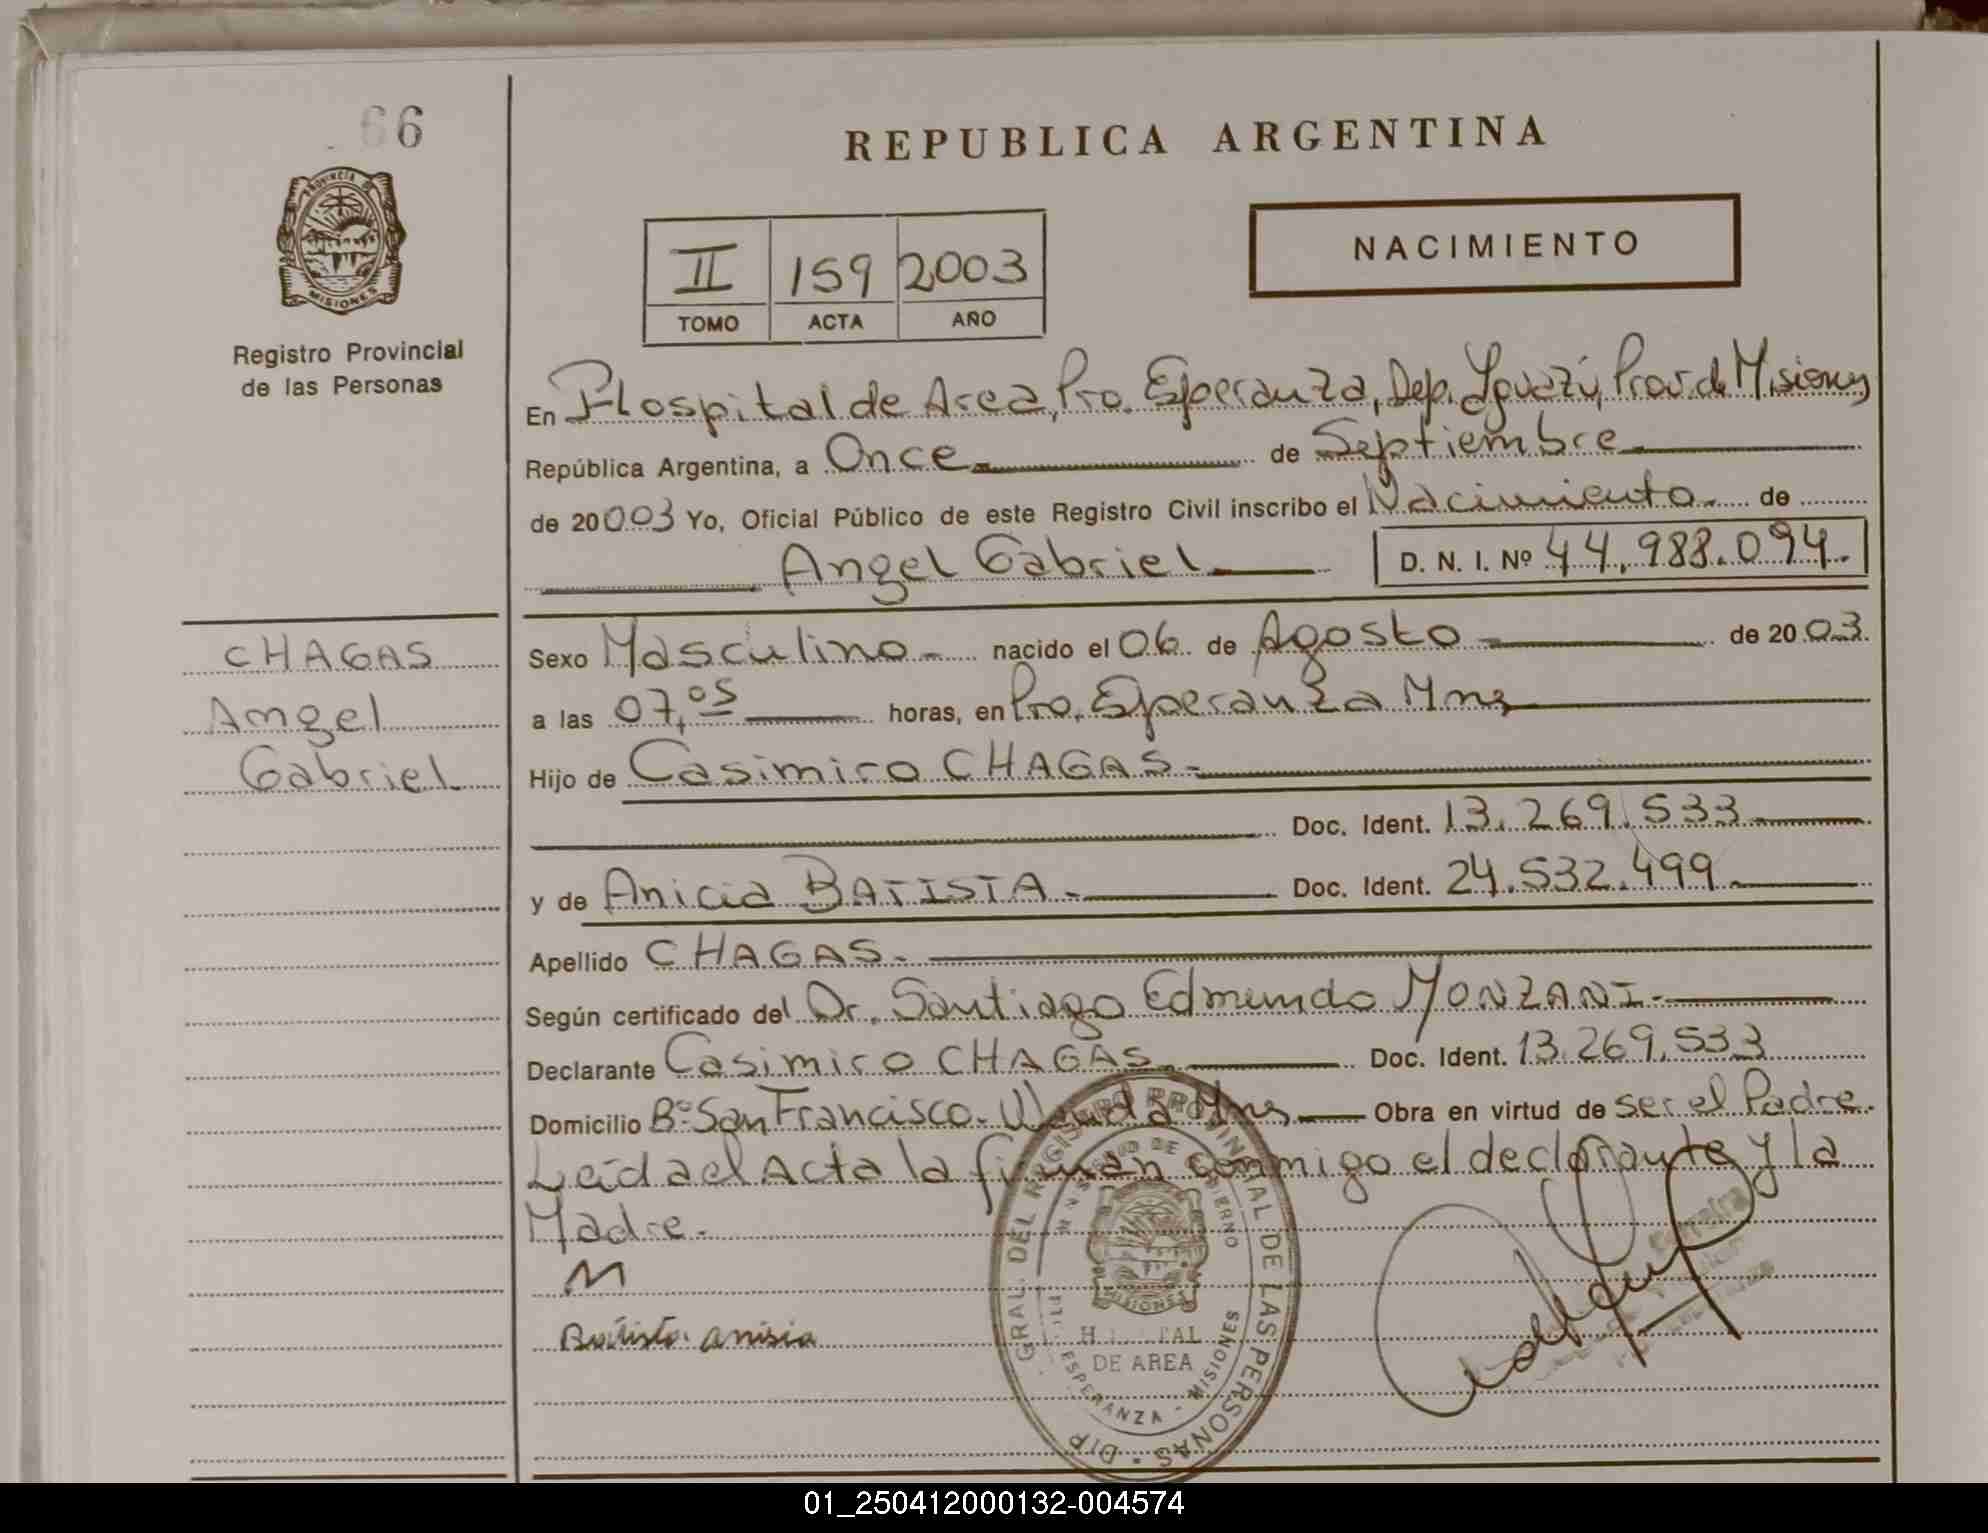 66
PROVINCIA DE
MISIONES
Registro Provincial
de las Personas
REPUBLICA ARGENTINA
II 159 2003
TOMO ACTA AÑO
NACIMIENTO
En Hospital de Area, Pto. Esperanza, Dep. Iguazú, Prov. de Misiones
República Argentina, a Once de Septiembre
de 20003 Yo, Oficial Público de este Registro Civil inscribo el Nacimiento. de
Angel Gabriel D. N. I. Nº 44.988.094.
CHAGAS
Angel
Gabriel
Sexo Masculino nacido el 06 de Agosto de 2003.
a las 07,05 horas, en Pto. Esperanza Mnes
Hijo de Casimiro CHAGAS.
Doc. Ident. 13.269.533
y de Anicia BATISTA. Doc. Ident. 24.532.499
Apellido CHAGAS.
Según certificado del Dr. Santiago Edmundo MONZANI.
Declarante Casimiro CHAGAS. Doc. Ident. 13.269.533
Domicilio Bº San Francisco. Wanda Mnes Obra en virtud de ser el Padre.
Leída el Acta la firman conmigo el declarante y la
Madre.
Batista anisia
GRAL. DEL REGISTRO PROVINCIAL DE LAS PERSONAS
MISIONES
DE AREA
ESPERANZA - MISIONES
DIP
01_250412000132-004574